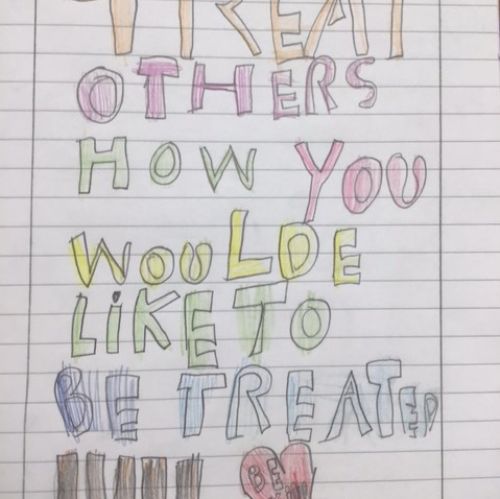 TREAT
OTHERS
HOW YOU
WOULDE
LiKE TO
BE TREATED
BE